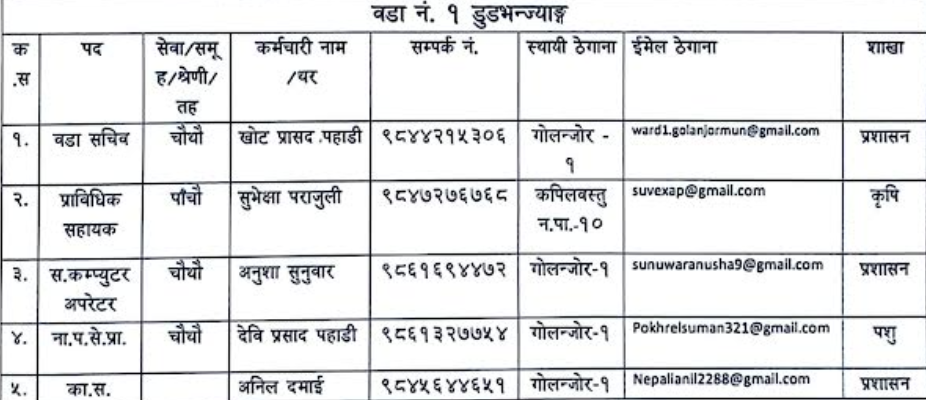 वडा नं. १ डुडभन्ज्याङ्ग
क.स | पद | सेवा/समूह/श्रेणी/तह | कर्मचारी नाम /थर | सम्पर्क नं. | स्थायी ठेगाना | ईमेल ठेगाना | शाखा
१. | वडा सचिव | चौथौ | खोट प्रासद पहाडी | ९८४४२१५३०६ | गोलन्जोर - १ | ward1.golanjormun@gmail.com | प्रशासन
२. | प्राविधिक सहायक | पाँचौ | सुभेक्षा पराजुली | ९८४७२७६७६८ | कपिलवस्तु न.पा.-१० | suvexap@gmail.com | कृषि
३. | स.कम्प्युटर अपरेटर | चौथौ | अनुशा सुनुवार | ९८६१६९४४७२ | गोलन्जोर-१ | sunuwaranusha9@gmail.com | प्रशासन
४. | ना.प.से.प्रा. | चौथौ | देवि प्रसाद पहाडी | ९८६१३२७७५४ | गोलन्जोर-१ | Pokhrelsuman321@gmail.com | पशु
५. | का.स. | अनिल दमाई | ९८४५६४४६५१ | गोलन्जोर-१ | Nepalianil2288@gmail.com | प्रशासन